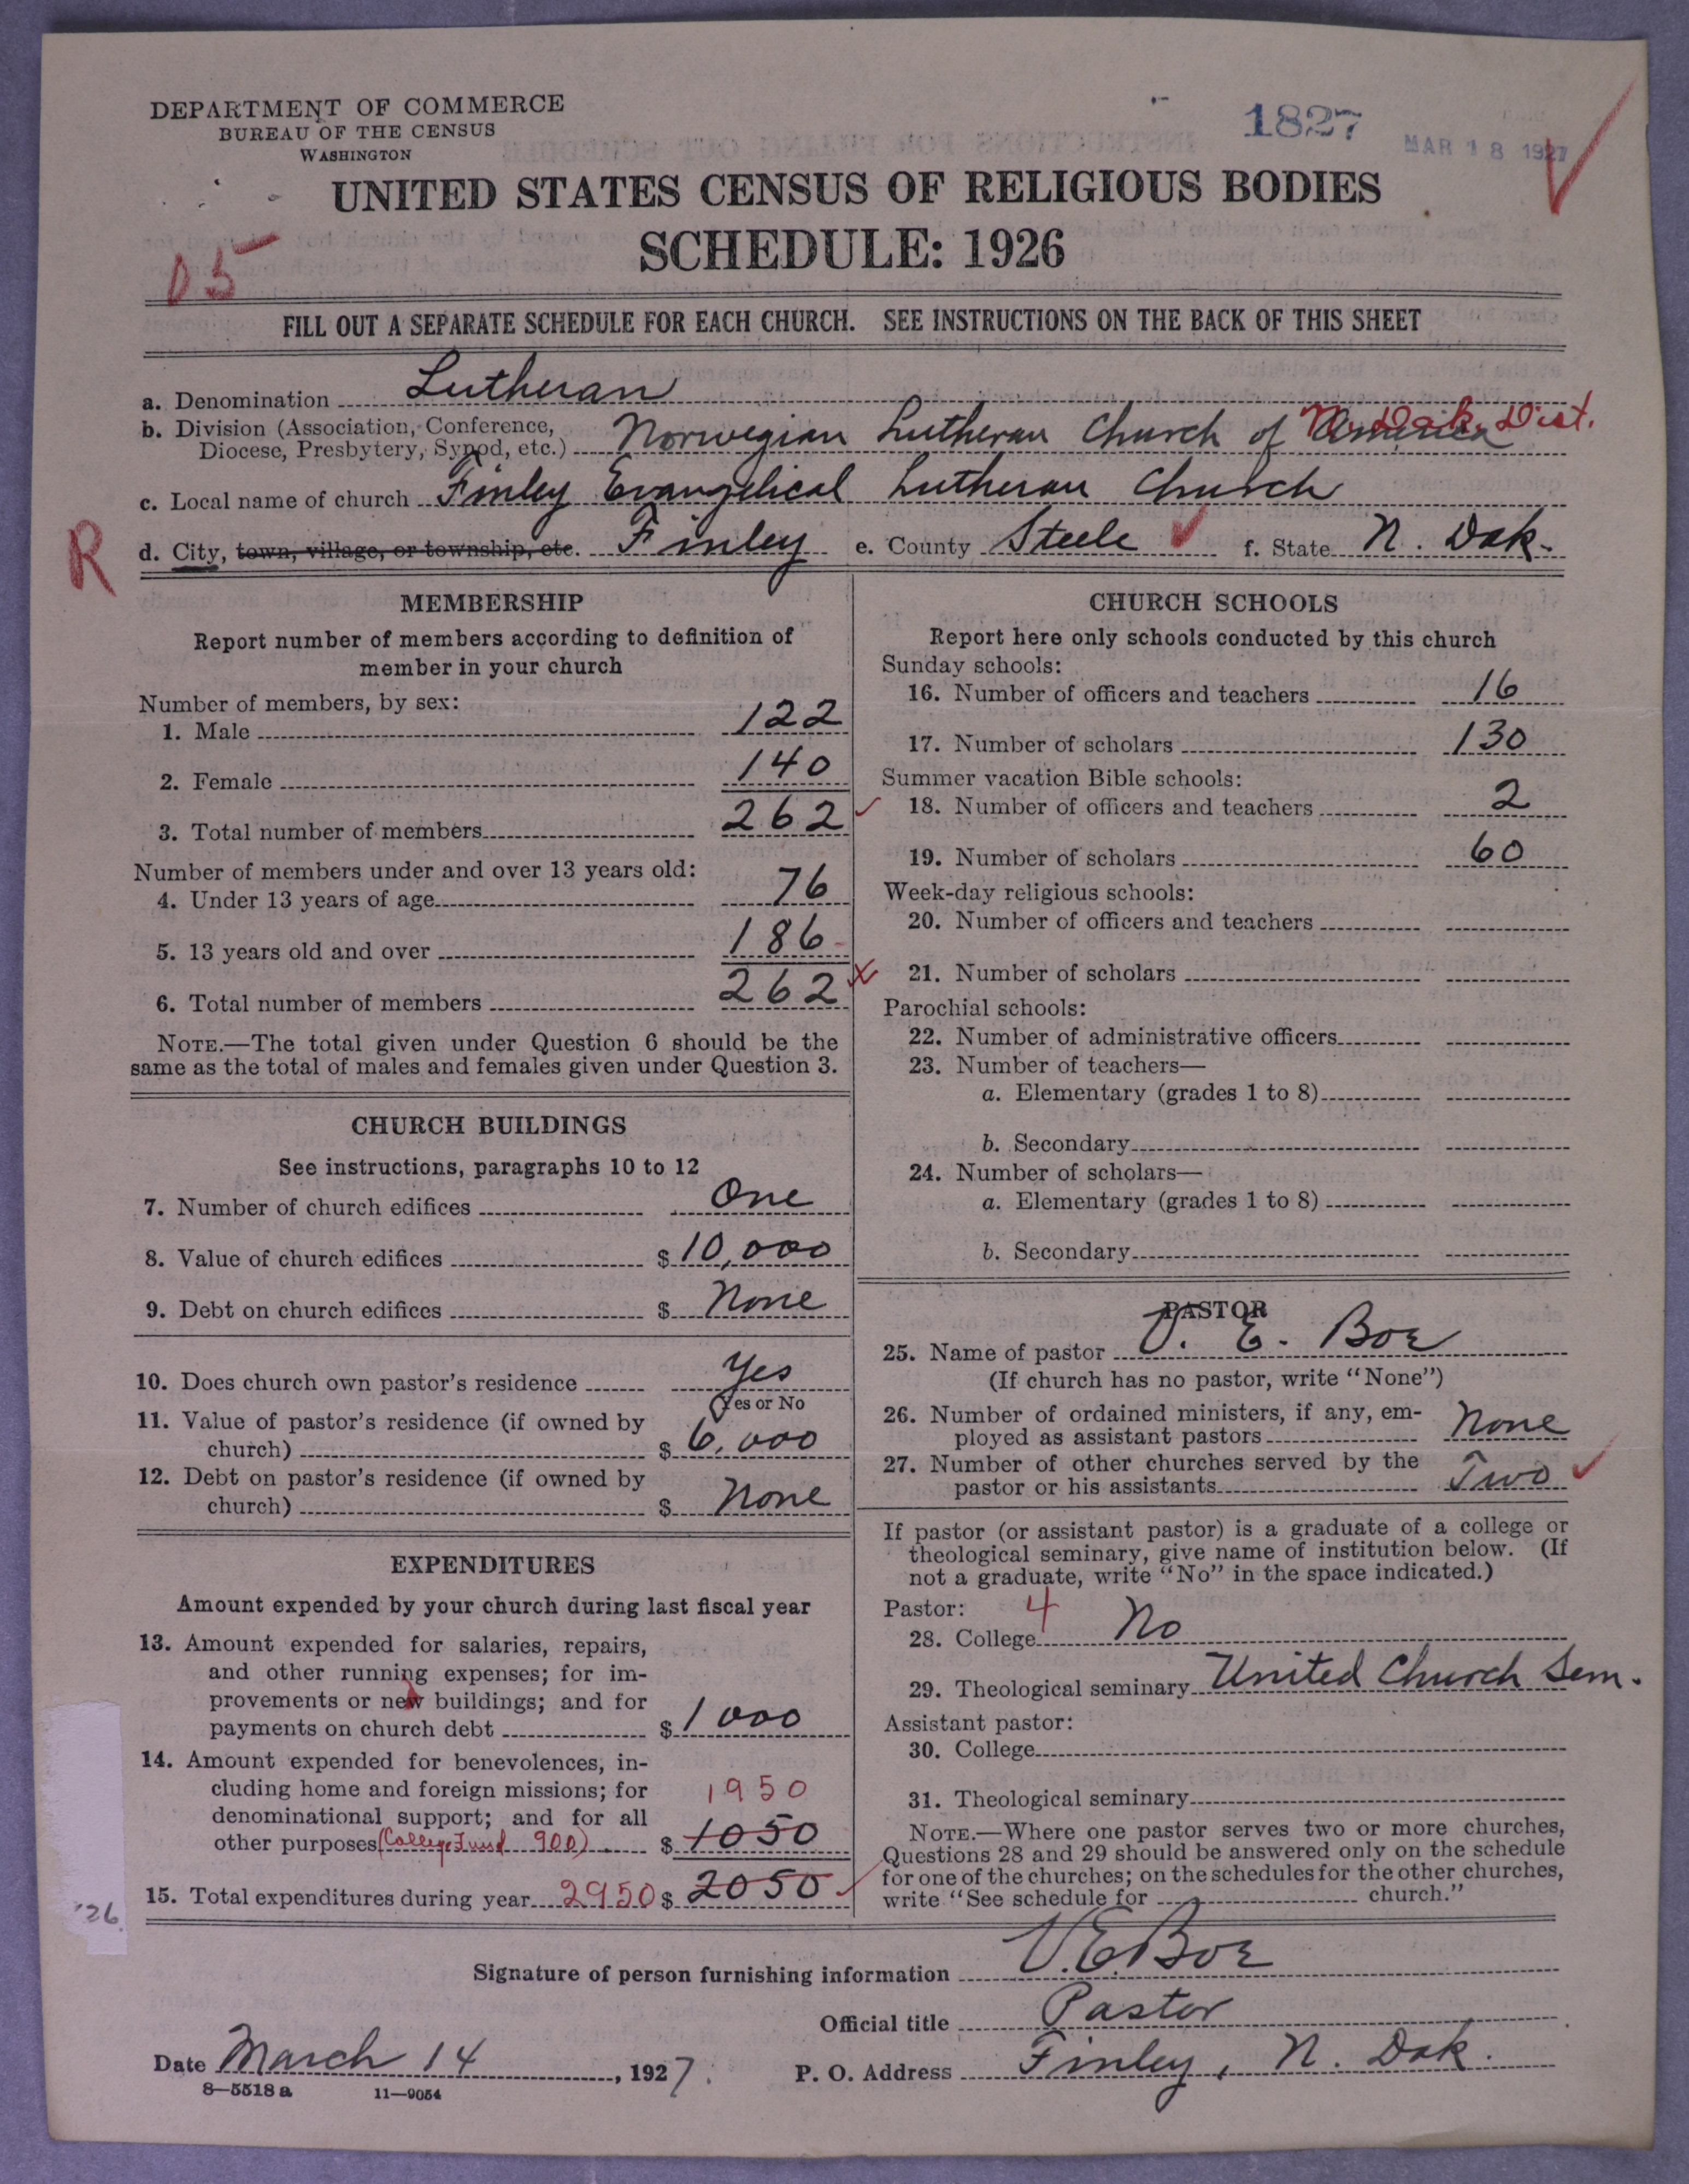 DEPARTMENT OF COMMERCE
BUREAU OF THE CENSUS
WASHINGTON
1827
MAR 18 1927
UNITED STATES CENSUS OF RELIGIOUS BODIES
SCHEDULE: 1926
05
FILL OUT A SEPARATE SCHEDULE FOR EACH CHURCH. SEE INSTRUCTIONS ON THE BACK OF THIS SHEET
a. Denomination Lutheran
b. Division (Association, Conference, Diocese, Presbytery, Synod, etc.) Norwegian Lutheran Church of America N. Dak. Dist.
c. Local name of church Finley Evangelical Lutheran Church
R
d. City, town, village, or township, etc. Finley e. County Steele f. State N. Dak.
MEMBERSHIP
Report number of members according to definition of
member in your church
Number of members, by sex:
1. Male 122
2. Female 140
3. Total number of members 262
Number of members under and over 13 years old:
4. Under 13 years of age 76
5. 13 years old and over 186
6. Total number of members 262
NOTE.—The total given under Question 6 should be the
same as the total of males and females given under Question 3.
CHURCH BUILDINGS
See instructions, paragraphs 10 to 12
7. Number of church edifices One
8. Value of church edifices $ 10,000
9. Debt on church edifices $ None
10. Does church own pastor's residence Yes
Yes or No
11. Value of pastor's residence (if owned by
church) $ 6,000
12. Debt on pastor's residence (if owned by
church) $ None
EXPENDITURES
Amount expended by your church during last fiscal year
13. Amount expended for salaries, repairs,
and other running expenses; for im-
provements or new buildings; and for
payments on church debt $ 1000
14. Amount expended for benevolences, in-
cluding home and foreign missions; for
denominational support; and for all 1950
other purposes (College Fund 900) $ 1050
15. Total expenditures during year 2950 $ 2050
'26
CHURCH SCHOOLS
Report here only schools conducted by this church
Sunday schools:
16. Number of officers and teachers 16
17. Number of scholars 130
Summer vacation Bible schools:
18. Number of officers and teachers 2
19. Number of scholars 60
Week-day religious schools:
20. Number of officers and teachers
21. Number of scholars
Parochial schools:
22. Number of administrative officers
23. Number of teachers—
a. Elementary (grades 1 to 8)
b. Secondary
24. Number of scholars—
a. Elementary (grades 1 to 8)
b. Secondary
PASTOR
25. Name of pastor V. E. Boe
(If church has no pastor, write "None")
26. Number of ordained ministers, if any, em-
ployed as assistant pastors None
27. Number of other churches served by the
pastor or his assistants Two
If pastor (or assistant pastor) is a graduate of a college or
theological seminary, give name of institution below. (If
not a graduate, write "No" in the space indicated.)
Pastor: 4
28. College No
29. Theological seminary United Church Sem.
Assistant pastor:
30. College
31. Theological seminary
NOTE.—Where one pastor serves two or more churches,
Questions 28 and 29 should be answered only on the schedule
for one of the churches; on the schedules for the other churches,
write "See schedule for church."
Signature of person furnishing information V. E. Boe
Official title Pastor
Date March 14, 1927. P. O. Address Finley, N. Dak.
8—5518 a 11—9054